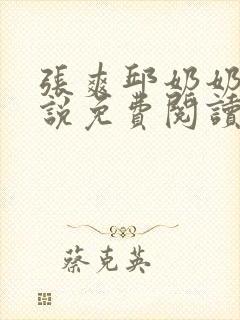 張爽邱奶奶
說免費閱讀
蔡克英